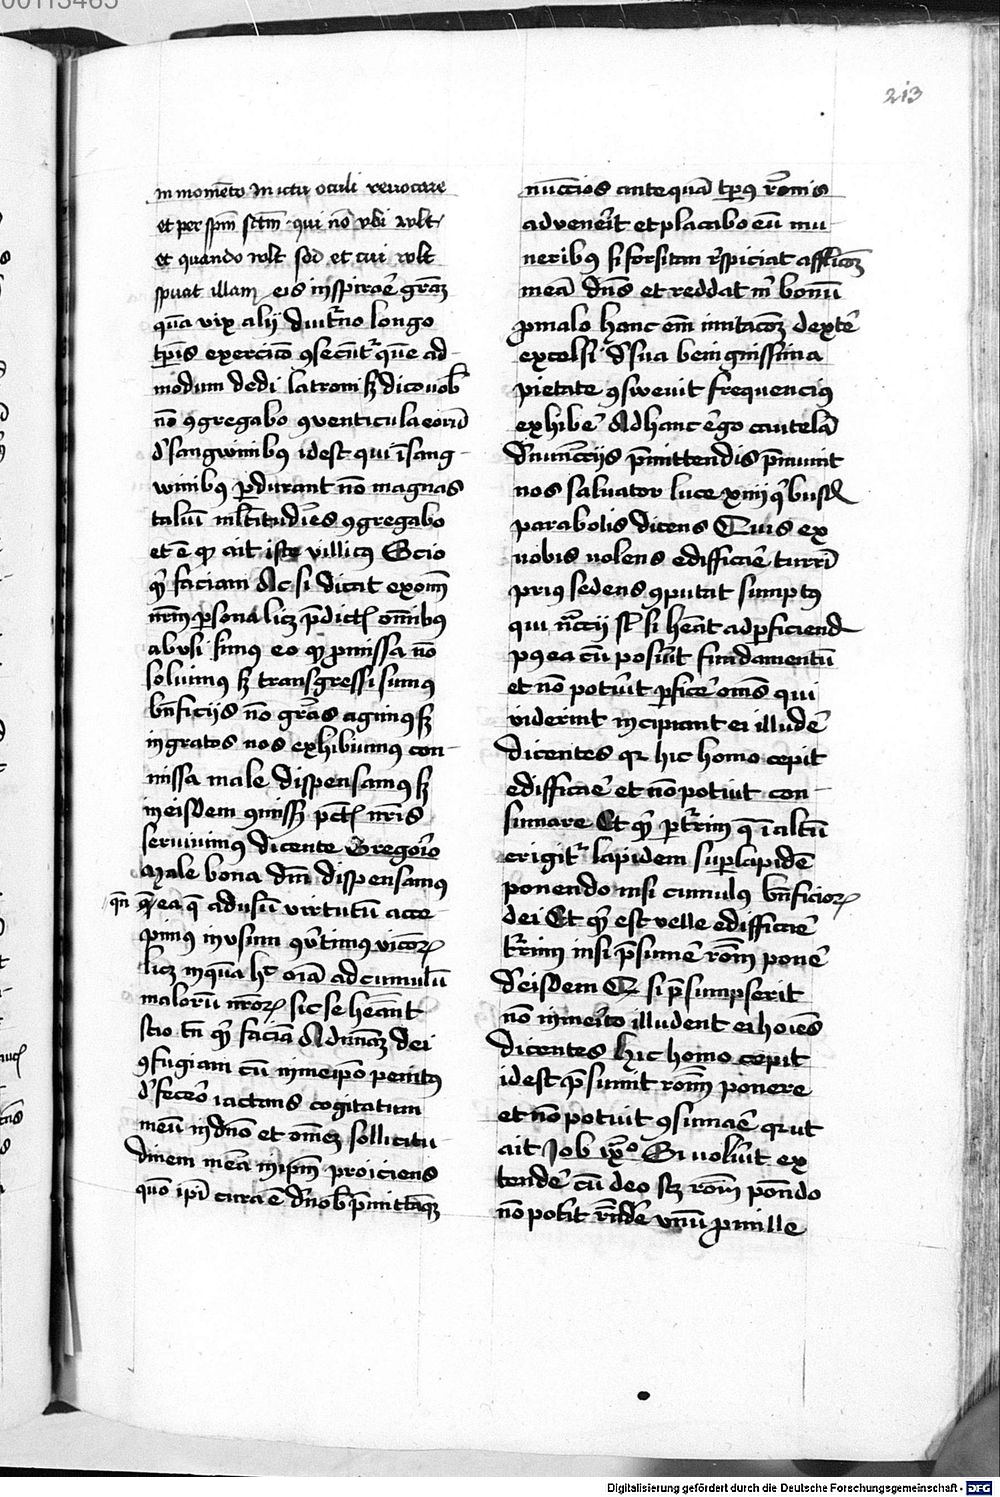 213
in momēto in ictu oculi revocare
et per sp̄m sctm̄ qui nō vbi vult
et quando vult sed et cui vult
spirat illam eis inspirare gr̄az
quā vix alij diut̄no longo
tp̄is exercicō ꝯsecūt quē ad
modum dedi latroni sz dico vob̄
nō ꝯgregabo ꝯventicula eorū
d' sangwinibꝰ idest qui ī sang
winibꝰ ꝑdurant nō magnas
taliū ml̄titudīes ꝯgregabo
et ē ꝙ ait iste villicꝰ Scio
qͥ faciam Ac si dicat ex om̄
nr̄m ꝑsona licz p̄dict̄ om̄ibꝰ
abusi simꝰ eo ꝙ ꝓmissa nō
soluimꝰ sz transgressi sumꝰ
bn̄ficijs nō gr̄as agimꝰ sz
ingratos nos exhibuimꝰ con
missa male dispensamꝰ sz
in eisdem ꝯmiss pct̄ nr̄is
seruiuimꝰ dicente Gregorio
Male bona dn̄i dispensamus
qn̄ ea q̄ ad usū virtutū acce
pimꝰ in vsum ꝯv̄timꝰ vicioꝝ
licz inquā hͨ oīa ad cumulū
maloꝝ nr̄oꝝ sic se heānt
scio tn̄ qͥ faciā Ad mīaz dei
ꝯfugiam cū in meipō penitꝰ
d'fecero iactans cogitatum
meū in dn̄o et om̄ez sollicitu
dinem meā in ip̄m proiciens
quō ip̄i cura ē d' nob̄ p̄mittāqz
nunccios ante quā tp̄us rōnis
advenerit et placabo eū mu
neribꝰ si forsitan r̄spiciat afflictōz
meā dn̄s et reddat m̄ bonū
pro malo hanc em̄ mutacōz dextē
excelsi d' sua benignissima
pietate ꝯswevit frequencius
exhibē Ad hanc ergo cautelā
d' nūccijs p̄mittendis p̄munit
nos saluator luce xiiij
parabolis dicens Quis ex
vobis volens edifficāe turrī
prius sedens ꝯputat sumptus
qui necc̄ij st̄ si heāt ad ꝑficiend
ne postea cū posūit fundamentū
et nō potūit ꝑficē om̄s qui
viderint incipiant ei illudē
dicentes qr hic homo cepit
edifficāe et nō potuit con
sumare Et qͥ ꝑ t'rim q̄ ī altū
erigit' lapidem suꝑ lapidē
ponendo nisi cumulꝰ bn̄ficioꝝ
dei Et qͥ est velle edifficāe
t'rim nisi p̄sumē rōm ponē
d' eisdem Qr si p̄sumpserit
nō inmerito illudent ei hoīes
dicentes hic homo cepit
idest p̄sumit rōm ponere
et nō potuit ꝯsumāe qr ut
ait Job ix° Si volūit ex
tendē cū deo scz rōm pōndo
nō potit r̄ndē vnū pro mille
Digitalisierung gefördert durch die Deutsche Forschungsgemeinschaft - DFG